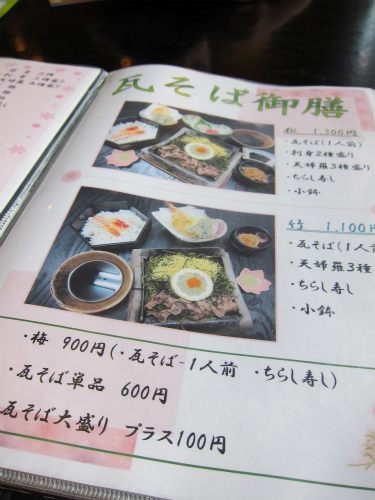 瓦そば御膳
松 1,300円
・瓦そば(1人前)
・刺身2種盛り
・天婦羅3種盛り
・ちらし寿し
・小鉢
竹 1,100円
・瓦そば(1人前
・天婦羅3種
・ちらし寿し
・小鉢
・梅 900円(・瓦そば-1人前 ・ちらし寿し)
・瓦そば単品 600円
瓦そば大盛り プラス100円